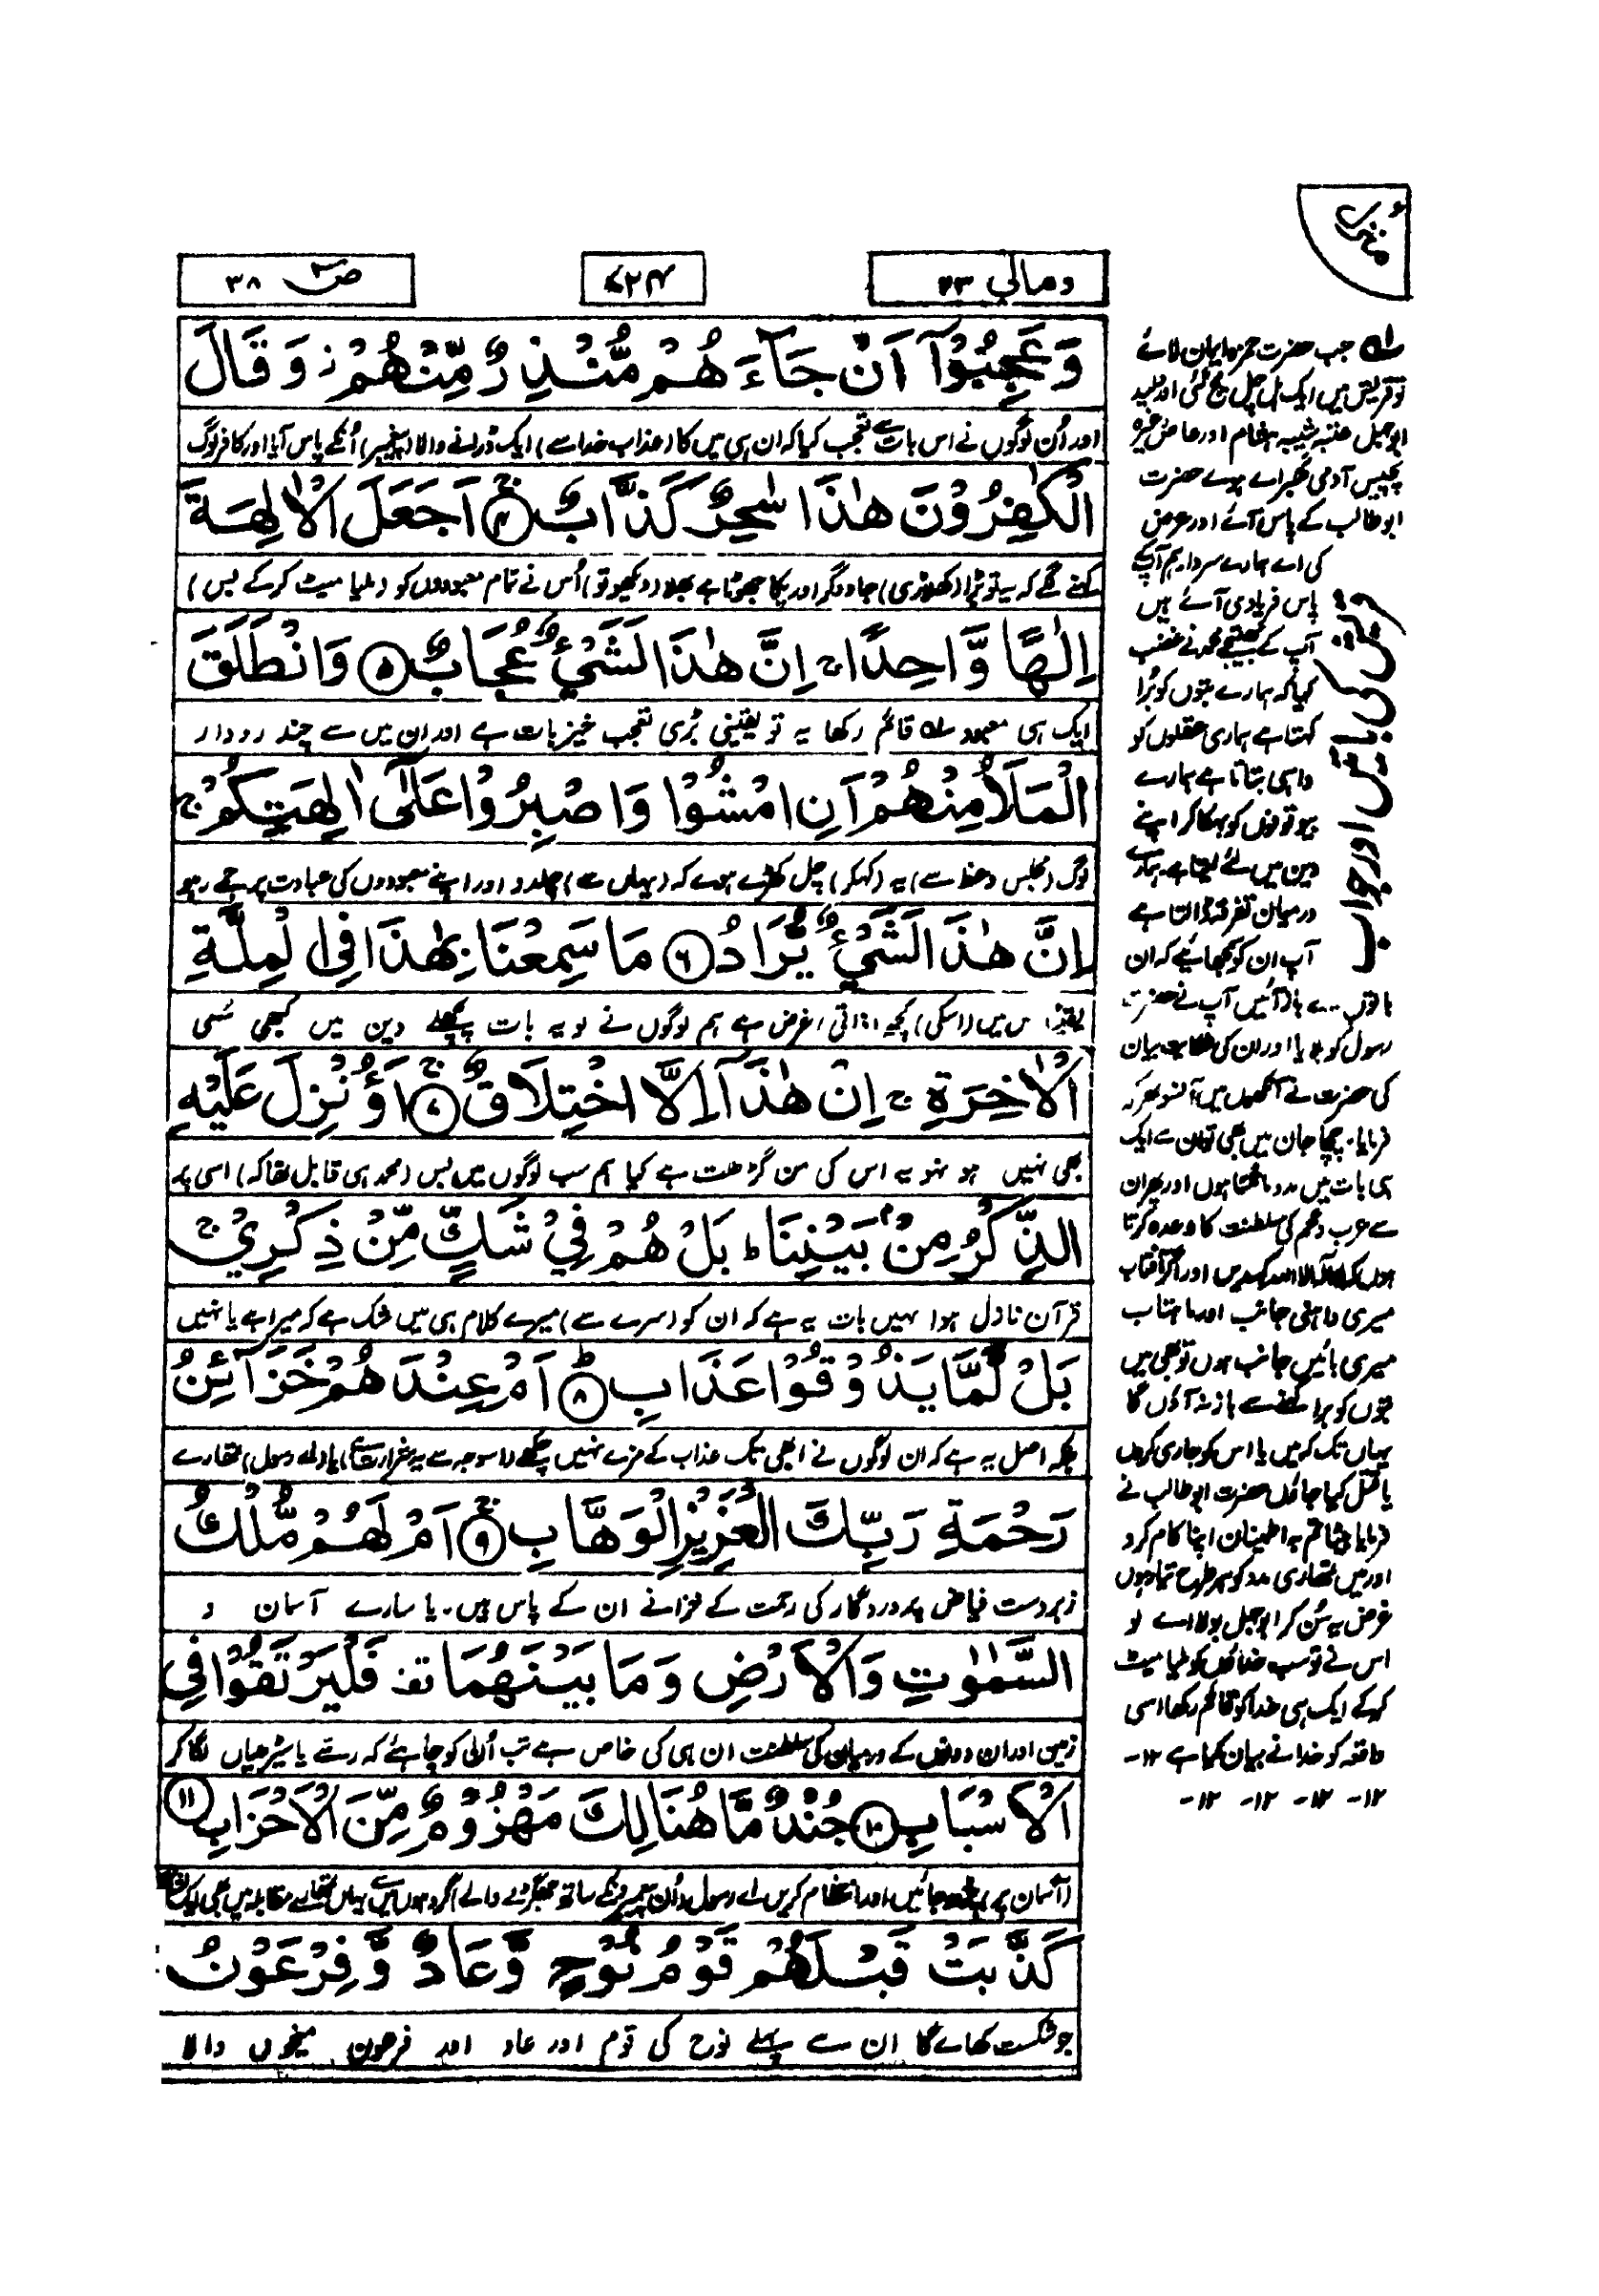 ومالي ٢٣
٧٢٤
صٓ ٣٨
وَعَجِبُوْٓا اَنْ جَآءَهُمْ مُّنْذِرٌ مِّنْهُمْ ز وَقَالَ
اور اُن لوگوں نے اس بات سے تعجب کیا کہ ان ہی میں کا (عذاب خدا سے) ایک ڈرانے والا (پیغمبر) اُنکے پاس آیا اور کافر لوگ
الْكٰفِرُوْنَ هٰذَا سٰحِرٌ كَذَّابٌ ۚ ﴿٤﴾ اَجَعَلَ الْاٰلِهَةَ
کہنے لگے کہ یہ تو بڑا (کھلاڑی) جادوگر اور پکا جھوٹا ہے بھلا (دیکھو تو) اُس نے تمام معبودوں کو (ملیا میٹ کرکے بس)
اِلٰهًا وَّاحِدًا ۖ اِنَّ هٰذَا لَشَيْءٌ عُجَابٌ ﴿٥﴾ وَانْطَلَقَ
ایک ہی معبود سلہ قائم رکھا یہ تو یقینی بڑی تعجب خیز بات ہے اور ان میں سے چند رودار
الْمَلَاُ مِنْهُمْ اَنِ امْشُوْا وَاصْبِرُوْا عَلٰٓى اٰلِهَتِكُمْ ۚ
لوگ (مجلس وعظ سے) یہ (کہکر) چل کھڑے ہوے کہ (یہاں سے) چلدو اور اپنے معبودوں کی عبادت پر جمے رہو
اِنَّ هٰذَا لَشَيْءٌ يُّرَادُ ﴿٦﴾ مَا سَمِعْنَا بِهٰذَا فِي الْمِلَّةِ
س میں (اسکی) کچھ (ذاتی) غرض ہے ہم لوگوں نے تو یہ بات پچھلے دین میں کبھی سنی
الْاٰخِرَةِ ۚ اِنْ هٰذَآ اِلَّا اخْتِلَاقٌ ۚ ﴿٧﴾ اَؤُنْزِلَ عَلَيْهِ
بھی نہیں ہو نہو یہ اس کی من گڑھت ہے کیا ہم سب لوگوں میں بس (محمد ہی قابل تھا کہ) اسی پر
الذِّكْرُ مِنْۢ بَيْنِنَا ؕ بَلْ هُمْ فِيْ شَكٍّ مِّنْ ذِكْرِيْ ۚ
قرآن نازل ہوا نہیں بات یہ ہے کہ ان کو (سرے سے) میرے کلام ہی میں شک ہے کہ میرا ہے یا نہیں
بَلْ لَّمَّا يَذُوْقُوْا عَذَابِ ؕ ﴿٨﴾ اَمْ عِنْدَهُمْ خَزَآئِنُ
بلکہ اصل یہ ہے کہ ان لوگوں نے ابھی تک عذاب کے مزے نہیں چکھے (اسوجہ سے یہ شرارت ہے) یا (اے رسول) تمھارے
رَحْمَةِ رَبِّكَ الْعَزِيْزِ الْوَهَّابِ ۚ ﴿٩﴾ اَمْ لَهُمْ مُّلْكُ
زبردست فیاض پروردگار کی رحمت کے خزانے ان کے پاس ہیں۔ یا سارے آسمان و
السَّمٰوٰتِ وَالْاَرْضِ وَمَا بَيْنَهُمَا قف فَلْيَرْتَقُوْا فِي
زمین اور ان دونوں کے درمیان کی سلطنت ان ہی کی خاص ہے تب اُن کو چاہئے کہ رستے یا سیڑھیاں لگاکر
الْاَسْبَابِ ﴿١٠﴾ جُنْدٌ مَّا هُنَالِكَ مَهْزُوْمٌ مِّنَ الْاَحْزَابِ ﴿١١﴾
(آسمان پر) چڑھ جائیں اور انتظام کریں اے رسول ان پیمبروں کے ساتھ جھگڑنے والے گروہوں میں سے یہاں تمھارے مقابلہ میں بھی ایک
كَذَّبَتْ قَبْلَهُمْ قَوْمُ نُوْحٍ وَّعَادٌ وَّفِرْعَوْنُ
جو شکست کھائے گا ان سے پہلے نوح کی قوم اور عاد اور فرعون میخوں والا
سلہ جب حضرت حمزہ ایمان لائے
تو قریش میں ایک ہل چل مچ گئی اور ولید
ابوجہل عتبہ شیبہ ہشام اور عاص وغیرہ
پچیس آدمی گھبراے ہوے حضرت
ابوطالب کے پاس آئے اور عرض
کی اے ہمارے سردار ہم آپکے
پاس فریادی آئے ہیں
آپ کے بھتیجے محمد نے غضب
کیا کہ ہمارے بتوں کو بُرا
کہتا ہے ہماری عقلوں کو
واہی بتاتا ہے ہمارے
بیوقوفوں کو بہکا کر اپنے
دین میں لئے لیتا ہے ہمارے
درمیان تفرقہ ڈالتا ہے
آپ ان کو سمجھائیے کہ ان
باتوں سے باز آئیں آپ نے حضرت
رسول کو بلایا اور ان کی شکایت بیان
کی حضرت نے آنکھوں میں آنسو بھر کر
فرمایا۔ چچا جان میں بھی تو ان سے ایک
ہی بات میں مدد مانگتا ہوں اور پھر ان
سے عرب وعجم کی سلطنت کا وعدہ کرتا
ہوں کہ لا الٰہ الا اللہ کہدیں اور اگر آفتاب
میری داہنی جانب اور ماہتاب
میری بائیں جانب ہوں تو بھی میں
بتوں کو برا کہنے سے باز نہ آؤں گا
یہاں تک کہ میں یا اس کو جاری کروں
یا قتل کیا جاؤں حضرت ابوطالب نے
فرمایا بیٹا تم بہ اطمینان اپنا کام کرو
اور میں تمھاری مدد کو ہر طرح تیار ہوں
غرض یہ سُن کر ابوجہل بولا اے لو
اس نے تو سب خداؤں کو ملیا میٹ
کرکے ایک ہی خدا کو قائم رکھا اسی
واقعہ کو خدا نے بیان کیا ہے ١٢-
١٢- ١٢- ١٢- ١٢-
قریش کی سازش اور جواب